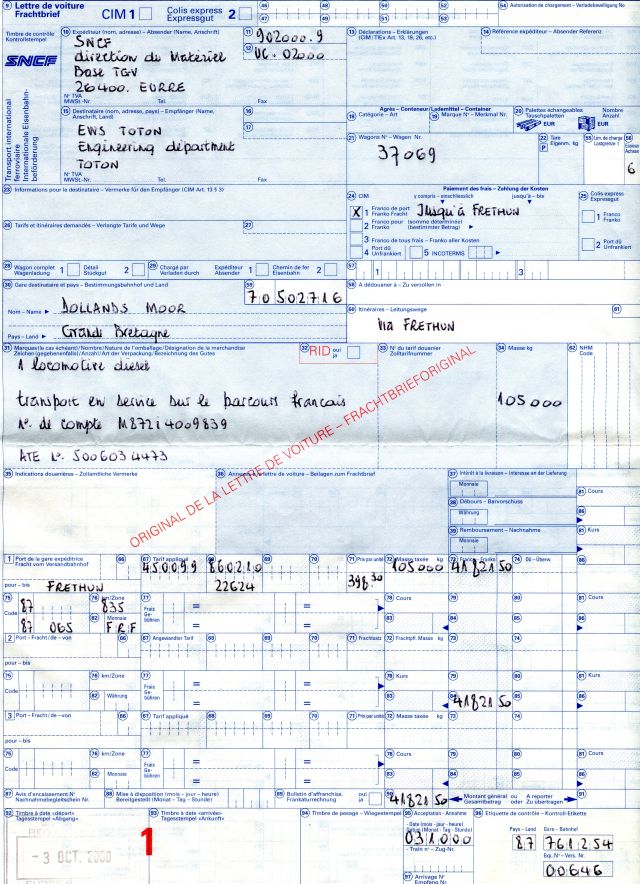 Lettre de voiture
Frachtbrief
CIM 1
Colis express
Expressgut
2
54 Autorisation de chargement – Verladebewilligung No
Timbre de contrôle
Kontrollstempel
SNCF
10 Expéditeur (nom, adresse) – Absender (Name, Anschrift)
SNCF
direction du Matériel
Base TGV
26400. EURRE
N° TVA
MWSt.-Nr.
Tel.
Fax
11 902000.9
12 UC. 02000
13 Déclarations – Erklärungen
(CIM/TIEx Art. 13, 19, 26, etc.)
14 Référence expéditeur – Absender Referenz
Transport international
ferroviaire
Internationale Eisenbahn-
beförderung
15 Destinataire (nom, adresse, pays) – Empfänger (Name,
Anschrift, Land)
EWS TOTON
Engineering department
TOTON
N° TVA
MWSt.-Nr.
Tel.
Fax
16
17
Agrès – Conteneur/Lademittel – Container
18 Catégorie – Art
19 Marque N° – Merkmal Nr.
20 Palettes échangeables
Tauschpaletten
Nombre
Anzahl
EUR
EUR
21 Wagons N° – Wagen Nr.
37069
22 Tare
Eigenm. kg
6
23 Informations pour le destinataire – Vermerke für den Empfänger (CIM Art. 13 § 3)
Paiement des frais – Zahlung der Kosten
24 CIM
y compris – einschliesslich
jusqu'à – bis
X 1 Franco de port
Franko Fracht
Jusqu'à FRETHUN
2 Franco pour (somme déterminée)
Franko (bestimmter Betrag)
3 Franco de tous frais – Franko aller Kosten
4 Port dû
Unfrankiert
5 INCOTERMS
25 Colis express
Expressgut
1 Franco
Franko
2 Port dû
Unfrankiert
26 Tarifs et itinéraires demandés – Verlangte Tarife und Wege
27
28 Wagon complet
Wagenladung
1
Détail
Stückgut
2
29 Chargé par
Verladen durch
Expéditeur
Absender
1
Chemin de fer
Eisenbahn
2
57
30 Gare destinataire et pays – Bestimmungsbahnhof und Land
70502716
Nom – Name
DOLLANDS MOOR
Pays – Land
Grande Bretagne
58 A dédouaner à – Zu verzollen in
60 Itinéraires – Leitungswege
61
Via FRETHUN
31 Marques(le cas échéant)/Nombre/Nature de l'emballage/Désignation de la marchandise
Zeichen (gegebenenfalls)/Anzahl/Art der Verpackung/Bezeichnung des Gutes
32 RID oui
ja
33 N° du tarif douanier
Zolltarifnummer
34 Masse kg
62 NHM
Code
1 locomotive diesel
transport en service sur le parcours francais
N°. de compte M872i4009839
ATE N°. 5006034473
105000
ORIGINAL DE LA LETTRE DE VOITURE – FRACHTBRIEFORIGINAL
35 Indications douanières – Zollamtliche Vermerke
36 Annexes à la lettre de voiture – Beilagen zum Frachtbrief
37 Intérêt à la livraison – Interesse an der Lieferung
Monnaie
38 Débours – Barvorschuss
Währung
39 Remboursement – Nachnahme
Monnaie
81 Cours
86
81 Kurs
86
1 Port de la gare expéditrice
Fracht vom Versandbahnhof
66
67 Tarif appliqué
450099
860210
22624
71 Prix par unité
398.30
72 Masse taxée kg
105000
73 Franco – Franko
4182150
74 Dû – Überw.
pour – bis
FRETHUN
75
Code
87
87 065
76 km/Zone
835
82 Monnaie
FRF
77
Frais
Ge-
bühren
=
=
78 Cours
79
80
83
84
85
2 Port – Fracht/de – von
66
67 Angewandter Tarif
68
69
70
71 Frachtsatz
72 Frachtpfl. Masse kg
73
74
pour – bis
75
Code
76 km/Zone
82 Währung
77
Frais
Ge-
bühren
=
=
78 Kurs
79
80
81 Kurs
83
84 4182150
85
86
3 Port – Fracht/de – von
66
67 Tarif appliqué
68
69
70
71 Prix par unité
72 Masse taxée kg
73
74
pour – bis
75
Code
76 km/Zone
82 Monnaie
77
Frais
Ge-
bühren
=
=
78 Cours
79
80
81 Cours
83
84
85
86
87 Avis d'encaissement N°
Nachnahmebegleitschein Nr.
88 Mise à disposition (mois – jour – heure)
Bereitgestellt (Monat – Tag – Stunde)
89 Bulletin d'affranchiss.
Frankaturrechnung
oui
ja
90 4182150
Montant général ou A reporter
Gesamtbetrag oder Zu übertragen
91
92 Timbre à date «départ»
Tagesstempel «Abgang»
- 3 OCT. 2000
93 Timbre à date «arrivée»
Tagesstempel «Ankunft»
1
94 Timbre de pesage – Wiegestempel
95 Acceptation – Annahme
- Date (mois - jour - heure)
Datum (Monat - Tag - Stunde)
031000
- Train n° – Zug-Nr.
97 Arrivage N°
Empfang Nr.
96 Etiquette de contrôle – Kontroll-Etikette
Pays – Land
87
Gare – Bahnhof
761254
Exp. N° – Vers. Nr.
00646